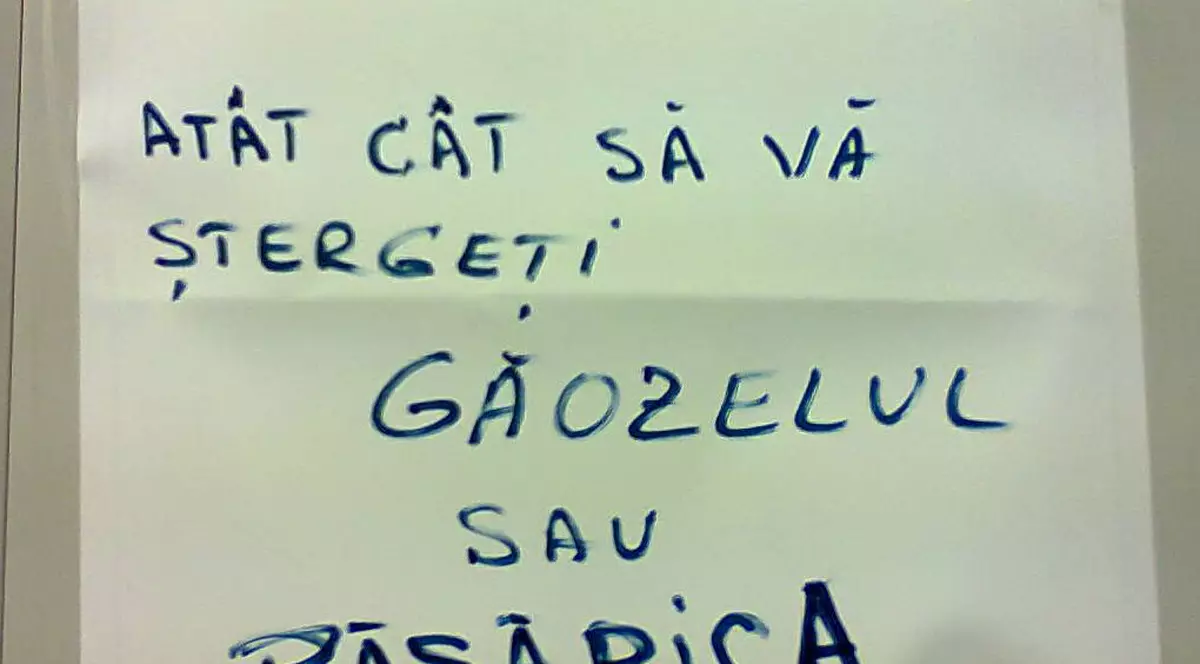 ATÂT CÂT SĂ VĂ
ȘTERGEȚI
GĂOZELUL
SAU
PĂSĂRICA